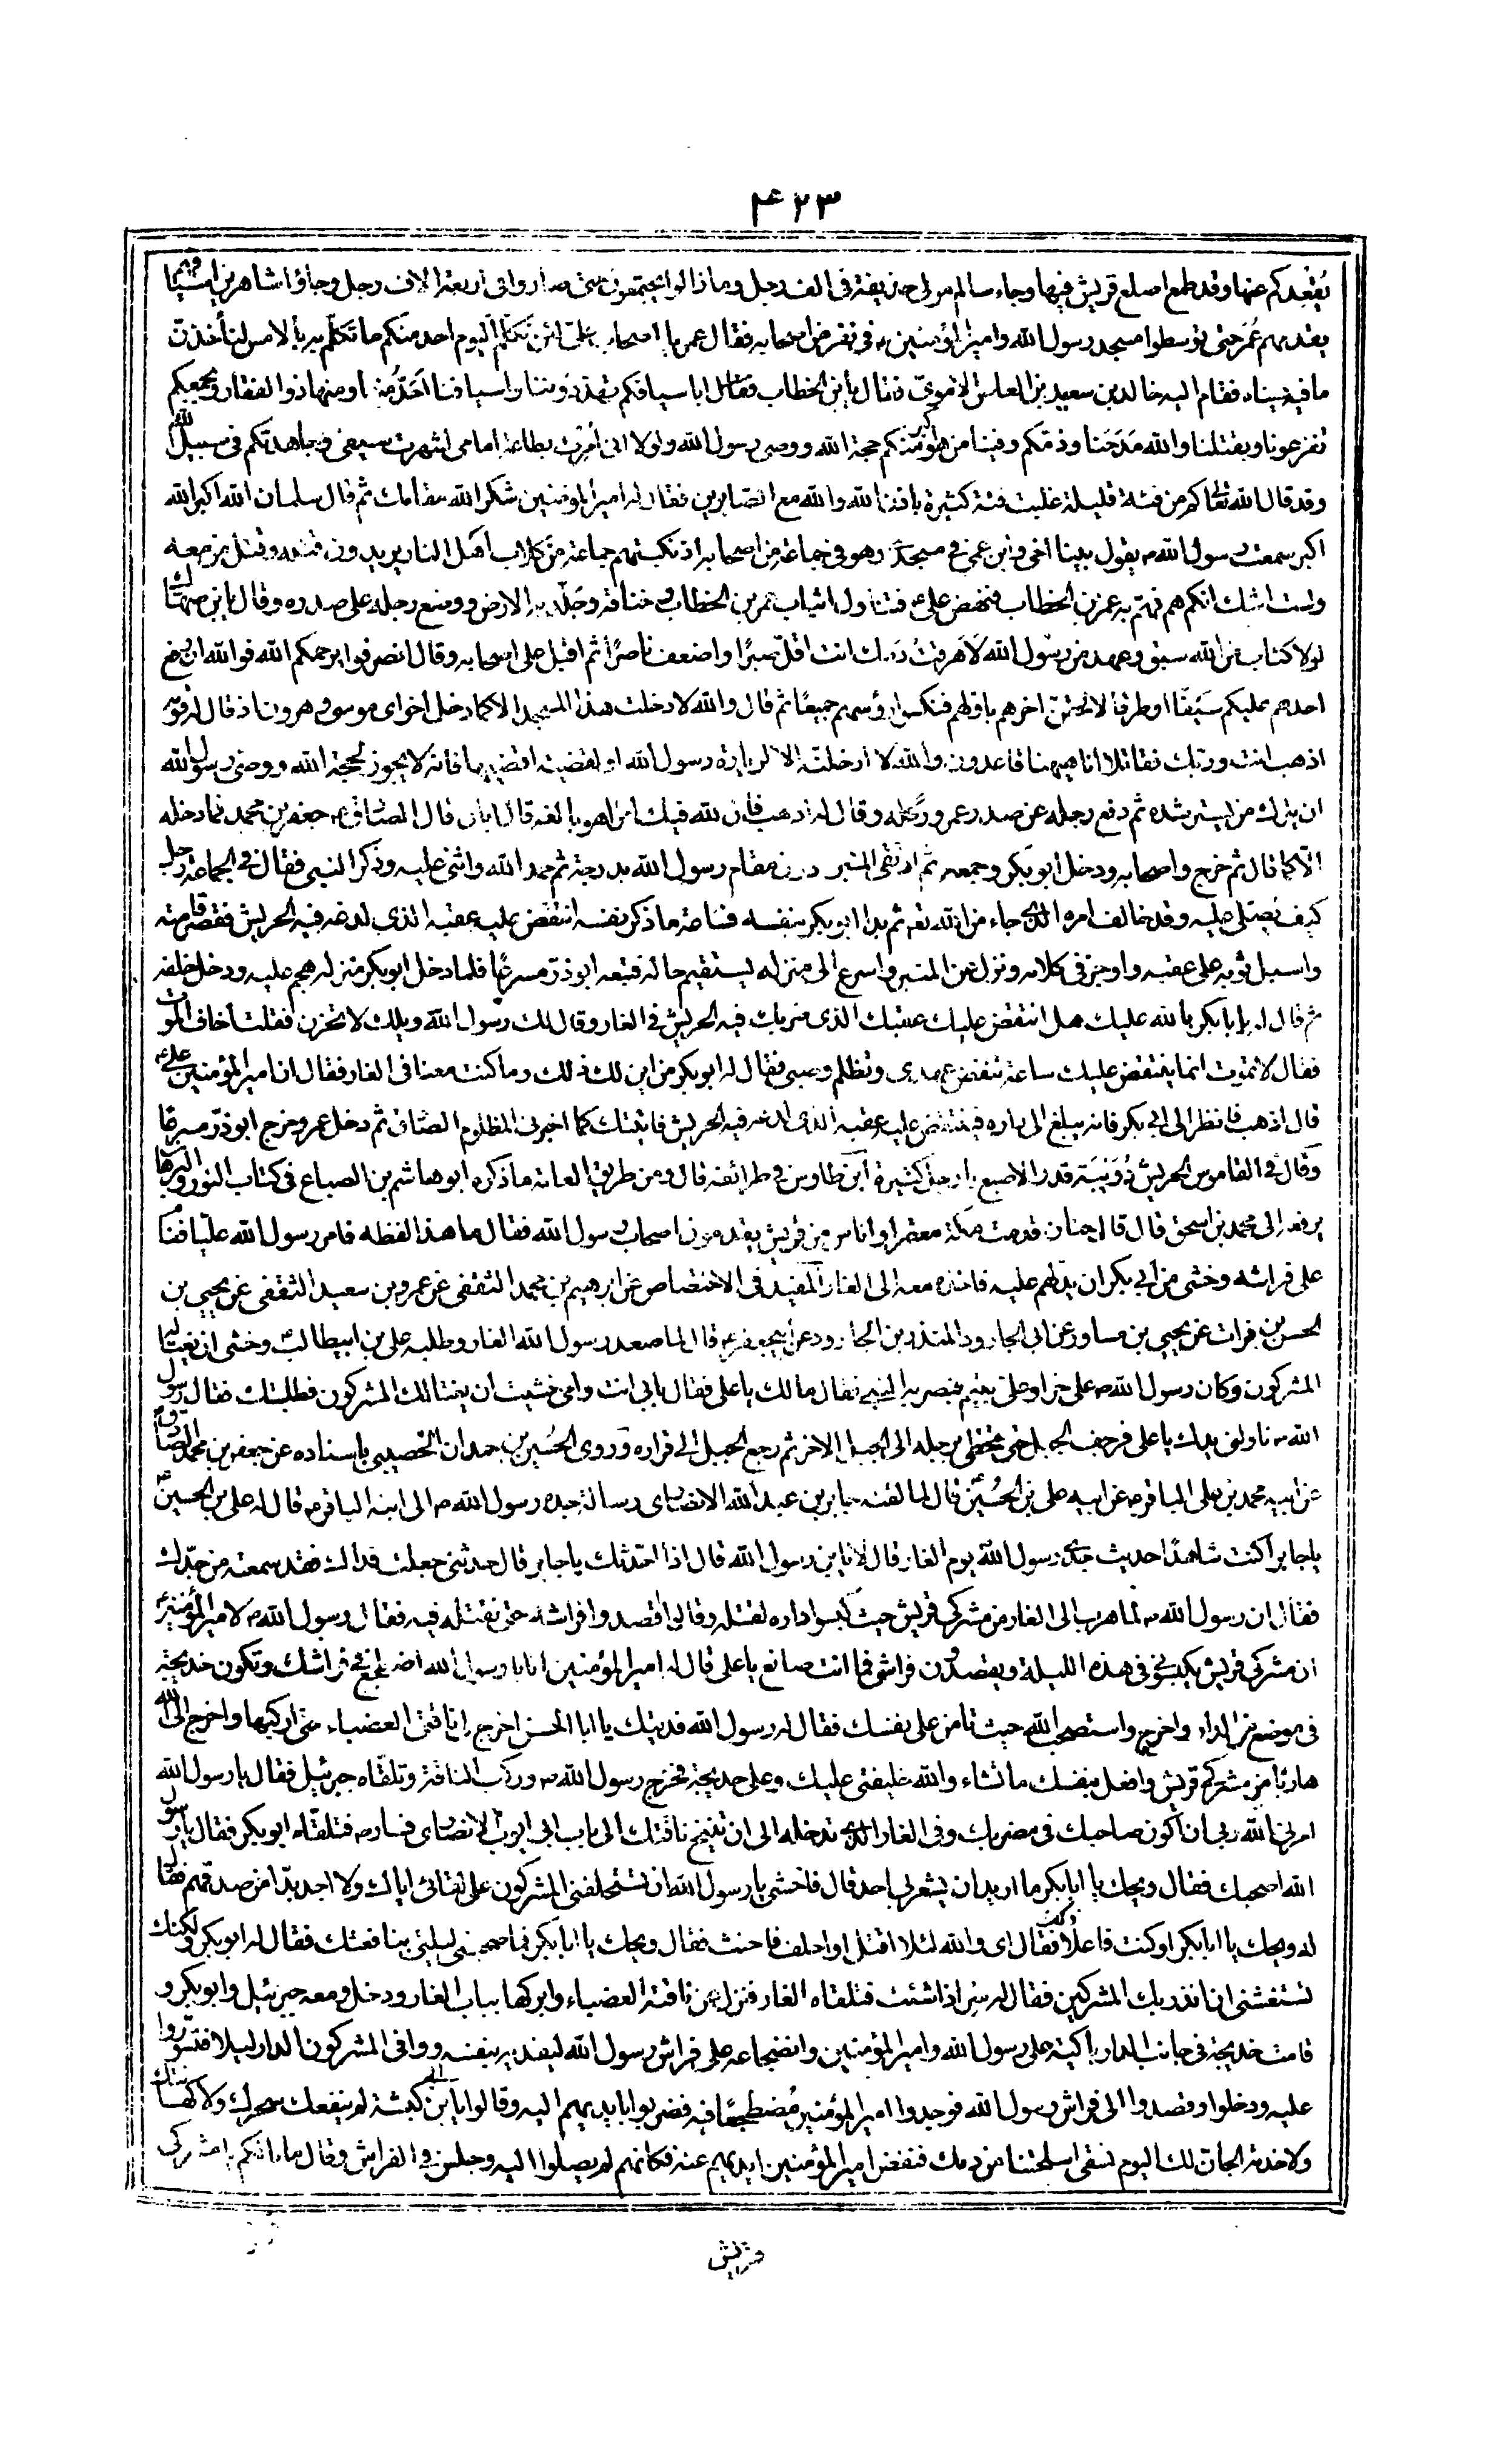 ٤٢٣
يقعدكم عنها وقد طمع اصلع قريش فيها وجاء سالم مولى حذيفة في الف رجل وما زالوا يجتمعون حتى صاروا في اربعة الاف رجل وجاؤا شاهرين اسيافهم
يقدمهم عمر حتى توسطوا مسجد رسول الله وامير المؤمنين ع في نفر من اصحابه فقال عمر يا اصحاب علي لئن تكلم اليوم احد منكم ما تكلم به بالامس لنأخذن
ما فيه عيناه فقام اليه خالد بن سعيد بن العاص الاموي فقال يا بن الخطاب ابأسيافكم تهددوننا واسيافنا احد منها ومنها ذو الفقار وبجمعكم
تفزعونا وبقتلنا والله مدحنا وذمكم وفينا من هو اكثر منكم حجة الله ووصي رسول الله ولولا اني امرت بطاعة امامي لشهرت سيفي وجاهدتكم في سبيل الله
وقد قال الله تعالى كم من فئة قليلة غلبت فئة كثيرة باذن الله والله مع الصابرين فقال له امير المؤمنين شكر الله مقامك ثم قال سلمان الله اكبر الله
اكبر سمعت رسول الله ص يقول بينا اخي وابن عمي في مسجد وهو في جماعة من اصحابه اذ تكبسهم جماعة من كلاب اهل النار يريدون قتله وقتل من معه
ولست اشك انكم هم فهم به عمر بن الخطاب فنهض علي ع فتناول اثياب عمر بن الخطاب في خناقه وجلد به الارض ووضع رجله على صدره وقال يا بن صهاك
لولا كتاب من الله سبق وعهد من رسول الله لاهرقت دمك انت اقل صبرا واضعف ناصرا ثم اقبل على اصحابه وقال انصرفوا يرحمكم الله فوالله ان رفع
احدهم عليكم سيفا او طرفا لالحقن اخرهم باولهم فنكسوا رؤسهم جميعا ثم قال والله لا دخلت هذا المسجد الا كما دخل اخواي موسى وهرون اذ قال له قومه
اذهب انت وربك فقاتلا انا هيهنا قاعدون والله لا ادخلته الا لزيارة رسول الله او لقضية اقضيها فانه لا يجوز لحجة الله ووصي رسول الله
ان يترك من يسترشده ثم رفع رجله عن صدر عمر وركله وقال له اذهب فان لله فيك امرا هو بالغه قال ابان قال الصادق ع جعفر بن محمد فما دخله
الا كما قال ثم خرج واصحابه ودخل ابو بكر وجمعه ثم ارتقى المنبر دون مقام رسول الله بدرجة ثم حمد الله واثنى عليه وذكر النبي فقال في الجماعة رجل
كيف تصلي عليه وقد خالف امره الذي جاء من الله نعم ثم بدا ابو بكر بنفسه فساعة ما ذكر نفسه انتقض عليه عقبه الذي لدغه فيه الحريش فقصر قامته
واسبل ثوبه على عقبه واوجز في كلامه ونزل عن المنبر واسرع الى منزله ليستقيم حاله فتبعه ابو ذر مسرعا فلما دخل ابو بكر منزله هجم عليه ودخل خلفه
ثم قال له يا ابا بكر بالله عليك هل انتقض عليك عقبك الذي ضربك فيه الحريش في الغار وقال لك رسول الله ويلك لا تحزن فقلت اخاف الموت
فقال لا تموت انما ينتقض عليك ساعة تنقض عهدي وتظلم وصيي فقال له ابو بكر من اين لك ذلك وما كنت معنا في الغار فقال ان امير المؤمنين علي ع
قال اذهب فانظر الى ابي بكر فانه يبلغ الى داره فينتقض عليه عقبه الذي لدغه فيه الحريش فاتيتك كما اخبرني المظلوم الصادق ثم دخل عمر وخرج ابو ذر مسرعا
وقال في القاموس الحريش دويبة قدر الاصبع بارجل كثيرة ابن طاوس في طرائفه قال ومن طريق العامة ما ذكره ابو هاشم بن الصباغ في كتاب النور والبرهان
يرفعه الى محمد بن اسحق قال قال حسان قدمت مكة معتمرا واناس من قريش يقدمون اصحاب رسول الله فقال ما هذا لفظه فامر رسول الله عليا فنام
على فراشه وخشي من ابي بكر ان يدلهم عليه فاخذه معه الى الغار المفيد في الاختصاص عن ابرهيم بن محمد الثقفي عن عمرو بن سعيد الثقفي عن يحيى بن
الحسن بن فرات عن يحيى بن مساور عن ابي الجارود المنذر بن الجارود عن ابي جعفر ع قال لما صعد رسول الله الغار وطلبه علي بن ابيطالب ع وخشي ان يغتاله
المشركون وكان رسول الله ص على حرا وعلي بثبير فبصر به النبي فقال ما لك يا علي فقال بابي انت وامي خشيت ان يغتالك المشركون فطلبتك فقال رسول
الله ص ناولني يدك يا علي فرجف الجبل حتى تخطى برجله الى الجبل الاخر ثم رجع الجبل الى قراره وروى الحسين بن حمدان الخصيبي باسناده عن جعفر بن محمد الصادق
عن ابيه محمد بن علي الباقر ع عن ابيه علي بن الحسين ع قال لما لقنه جابر بن عبد الله الانصاري رسالة جده رسول الله ص الى ابنه الباقر ع قال له علي بن الحسين ع
يا جابر اكنت شاهدا حديث جدي رسول الله يوم الغار قال لا يا بن رسول الله قال اذا احدثك يا جابر قال حدثني جعلت فداك فقد سمعته من جدك
فقال ان رسول الله ص لما هرب الى الغار من مشركي قريش حيث كبسوا داره لقتله وقالوا اقصدوا فراشه حتى نقتله فيه فقال رسول الله ص لامير المؤمنين ع
ان مشركي قريش يكبسوني في هذه الليلة ويقصدون فراشي فما انت صانع يا علي قال له امير المؤمنين انا يا رسول الله اضطجع في فراشك وتكون خديجة
في موضع من الدار واخرج واستصحب الله حيث تأمن على نفسك فقال له رسول الله فديتك يا ابا الحسن اخرج لي ناقتي العضباء حتى اركبها واخرج الى الله
هاربا من مشركي قريش وافعل بنفسك ما تشاء والله خليفتي عليك وعلى خديجة فخرج رسول الله ص وركب الناقة وتلقاه جبرئيل فقال يا رسول الله
امرني الله ربي ان اكون صاحبك في مضربك وفي الغار الذي تدخله الى ان تنيخ ناقتك الى باب ابي ايوب الانصاري فسار ص فتلقاه ابو بكر فقال يا رسول
الله اصحبك فقال ويحك يا ابا بكر ما اريد ان يشعر بي احد قال فاخشى يا رسول الله ان تستحلفني المشركون على لقائي اياك ولا اجد بدا من صدقهم فقال
له ويحك يا ابا بكر او كنت فاعلا ذلك فقال اي والله لئلا اقتل او احلف فاحنث فقال ويحك يا ابا بكر فما صحبتي ليلتي بنافعتك فقال له ابو بكر ولكنك
تستغشني ان انذر بك المشركين فقال له سر اذا شئت فتلقاه الغار فنزل عن ناقته العضباء وابركها بباب الغار ودخل ومعه جبرئيل وابو بكر و
قامت خديجة في جانب الدار باكية على رسول الله وامير المؤمنين واضجاعه على فراش رسول الله ليفديه بنفسه ووافى المشركون الدار ليلا فتسوروا
عليه ودخلوا وقصدوا الى فراش رسول الله فوجدوا امير المؤمنين مضطجعا فيه فضربوا بايديهم اليه وقالوا يا بن ابي كبشة لم ينفعك سحرك ولا كهانتك
ولا خدمة الجان لك اليوم نسقي اسلحتنا من دمك فنفض امير المؤمنين ايديهم عنه فكانهم لم يصلوا اليه وجلس في الفراش وقال ما بالكم يا مشركي
قريش